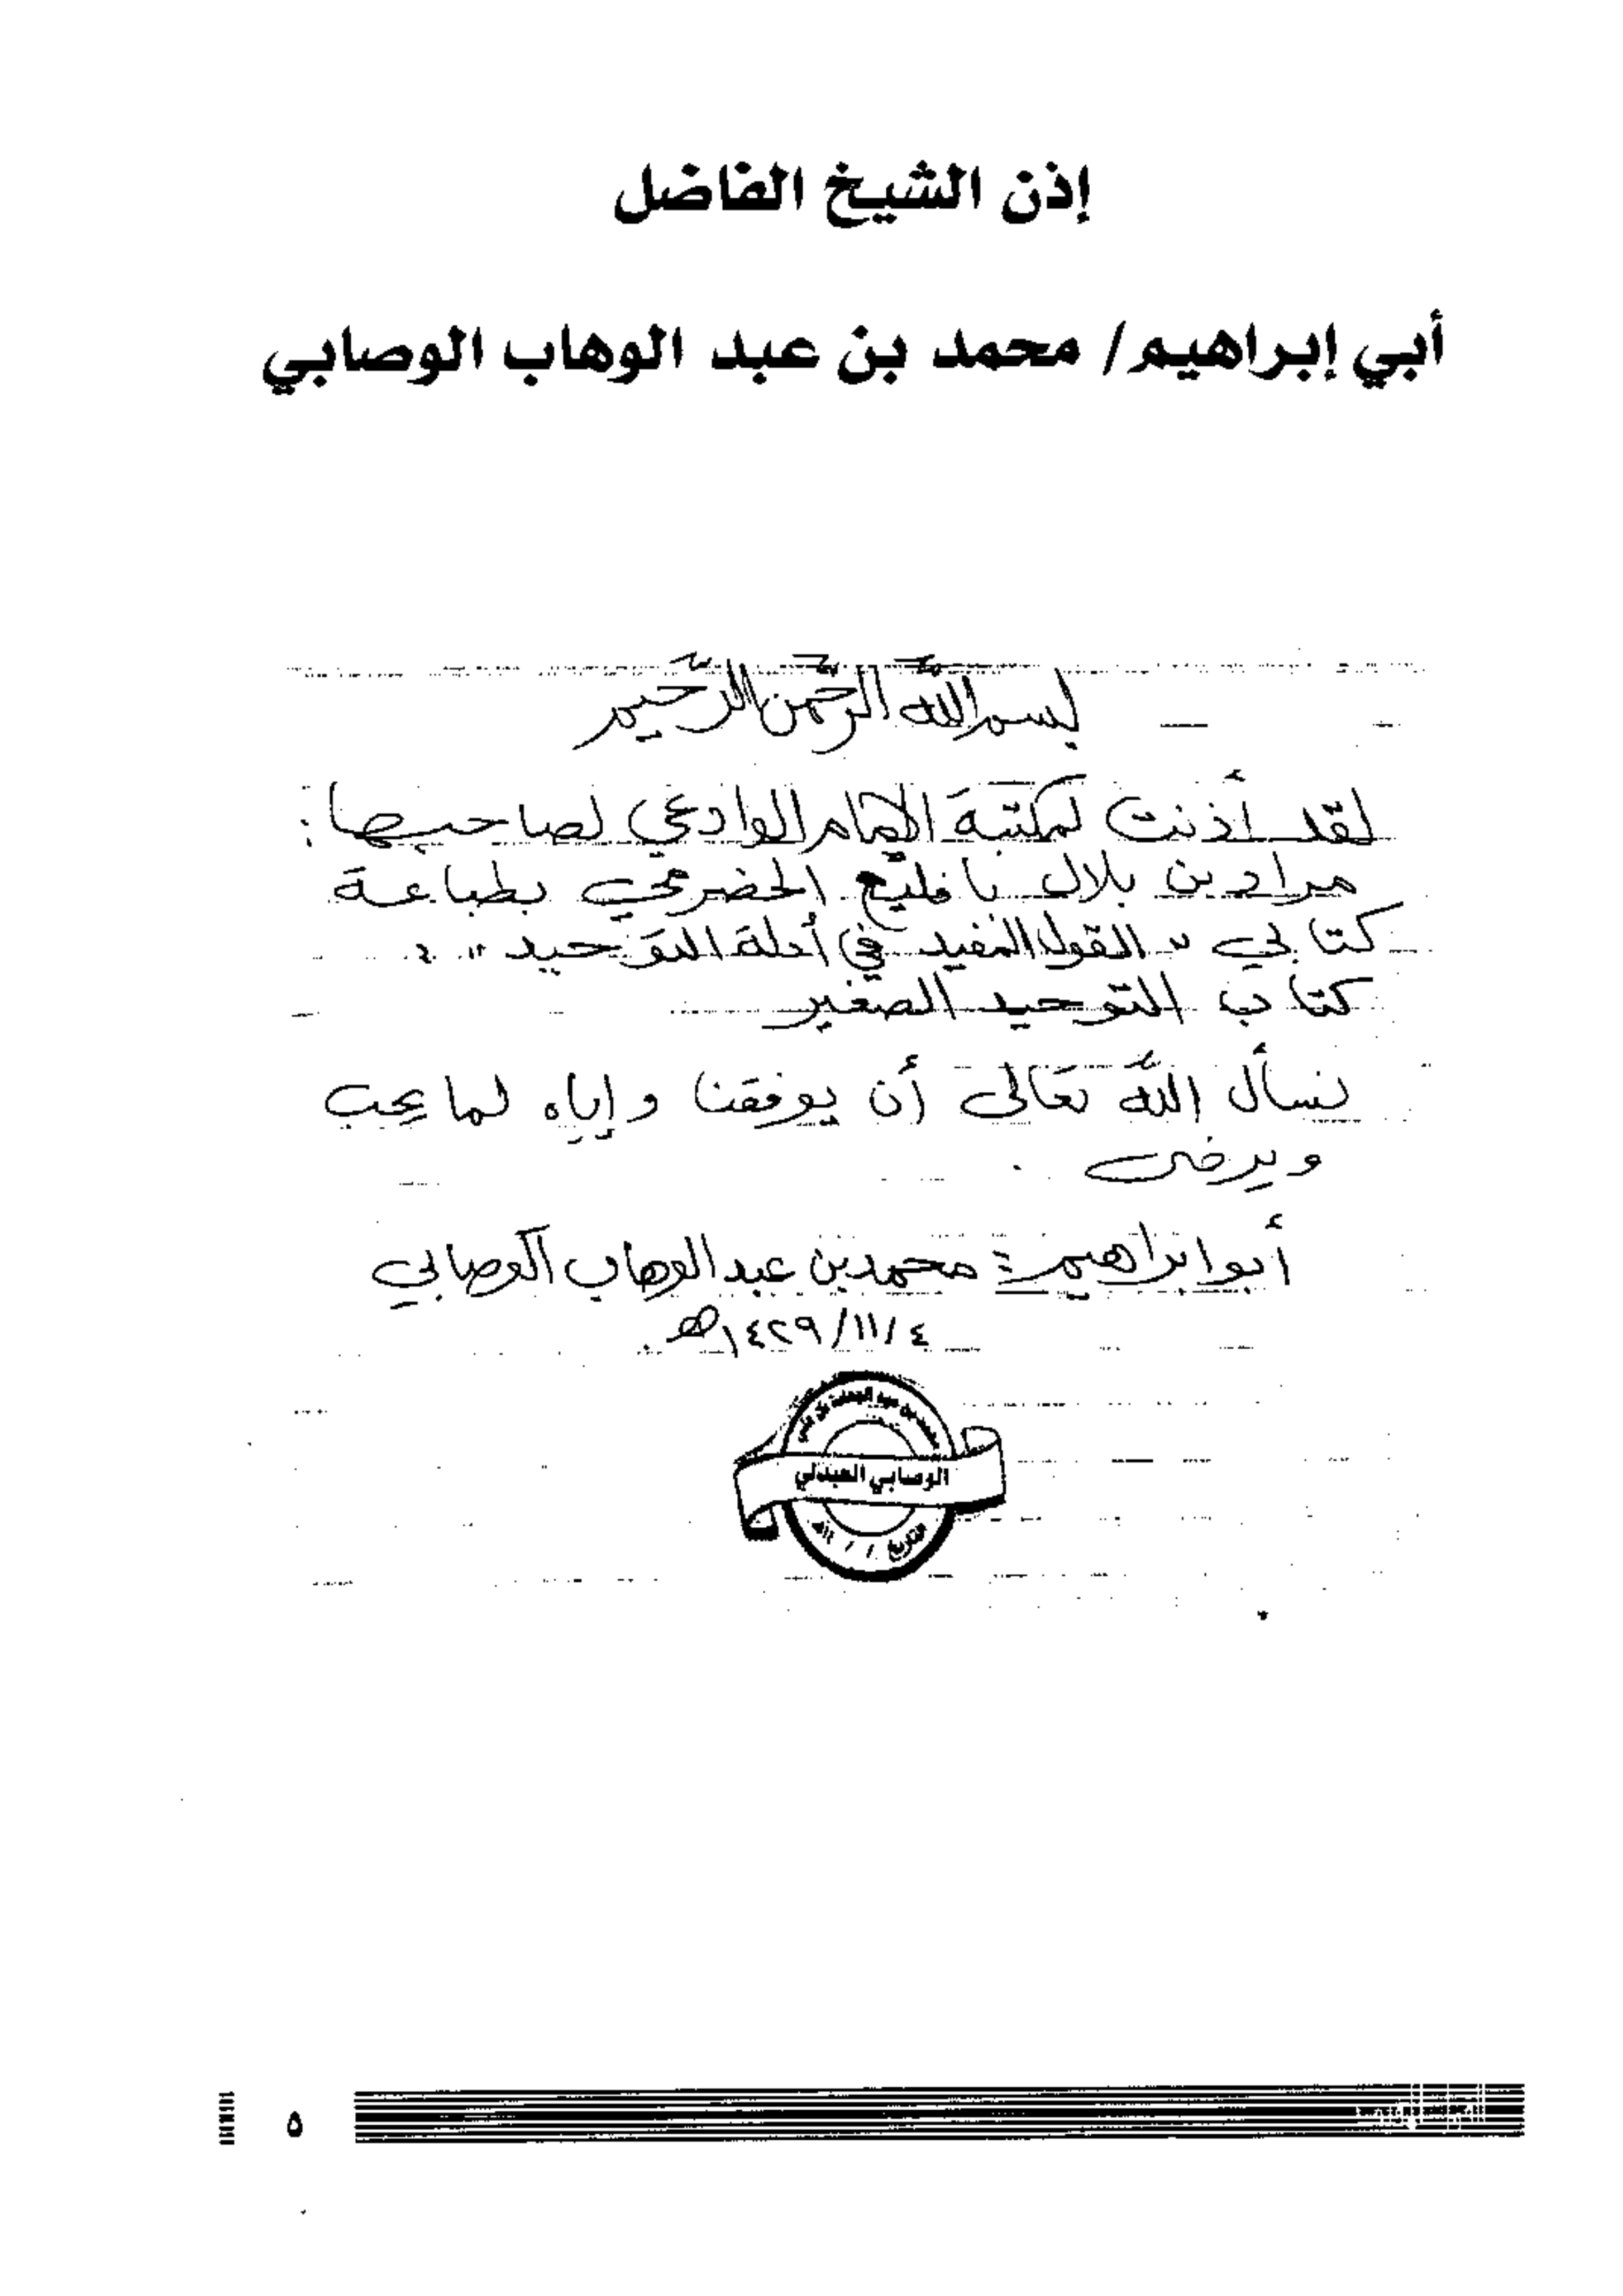 إذن الشيخ الفاضل
أبي إبراهيم/ محمد بن عبد الوهاب الوصابي
بسم اللّه الرحمن الرحيم
لقد أذنت لمكتبة الإمام الوادعي لصاحبها:
مراد بن بلال الحضرمي بطباعة
كتابي " القول المفيد في أدلة التوحيد " و
كتاب التوحيد الصغير
نسأل اللّه تعالى أن يوفقنا وإياه لما يحب
ويرضى .
أبو ابراهيم : محمد بن عبد الوهاب الوصابي
٤/١١/١٤٢٩هـ.
الوصابي العبدلي
التاريخ / / ١٤هـ
٥